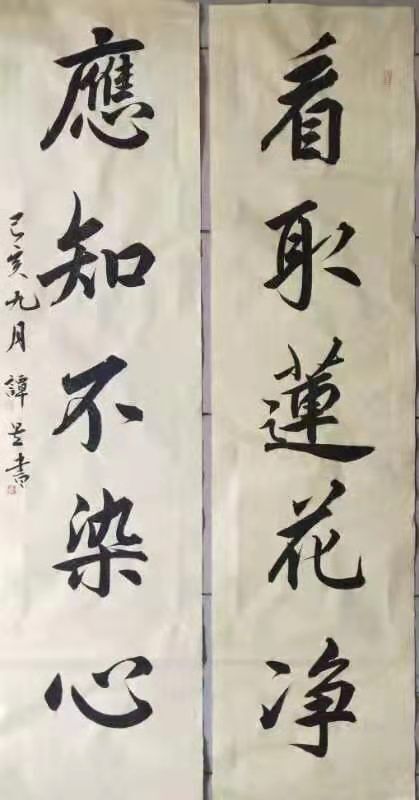 看取蓮花净
應知不染心
己亥九月 譚
書